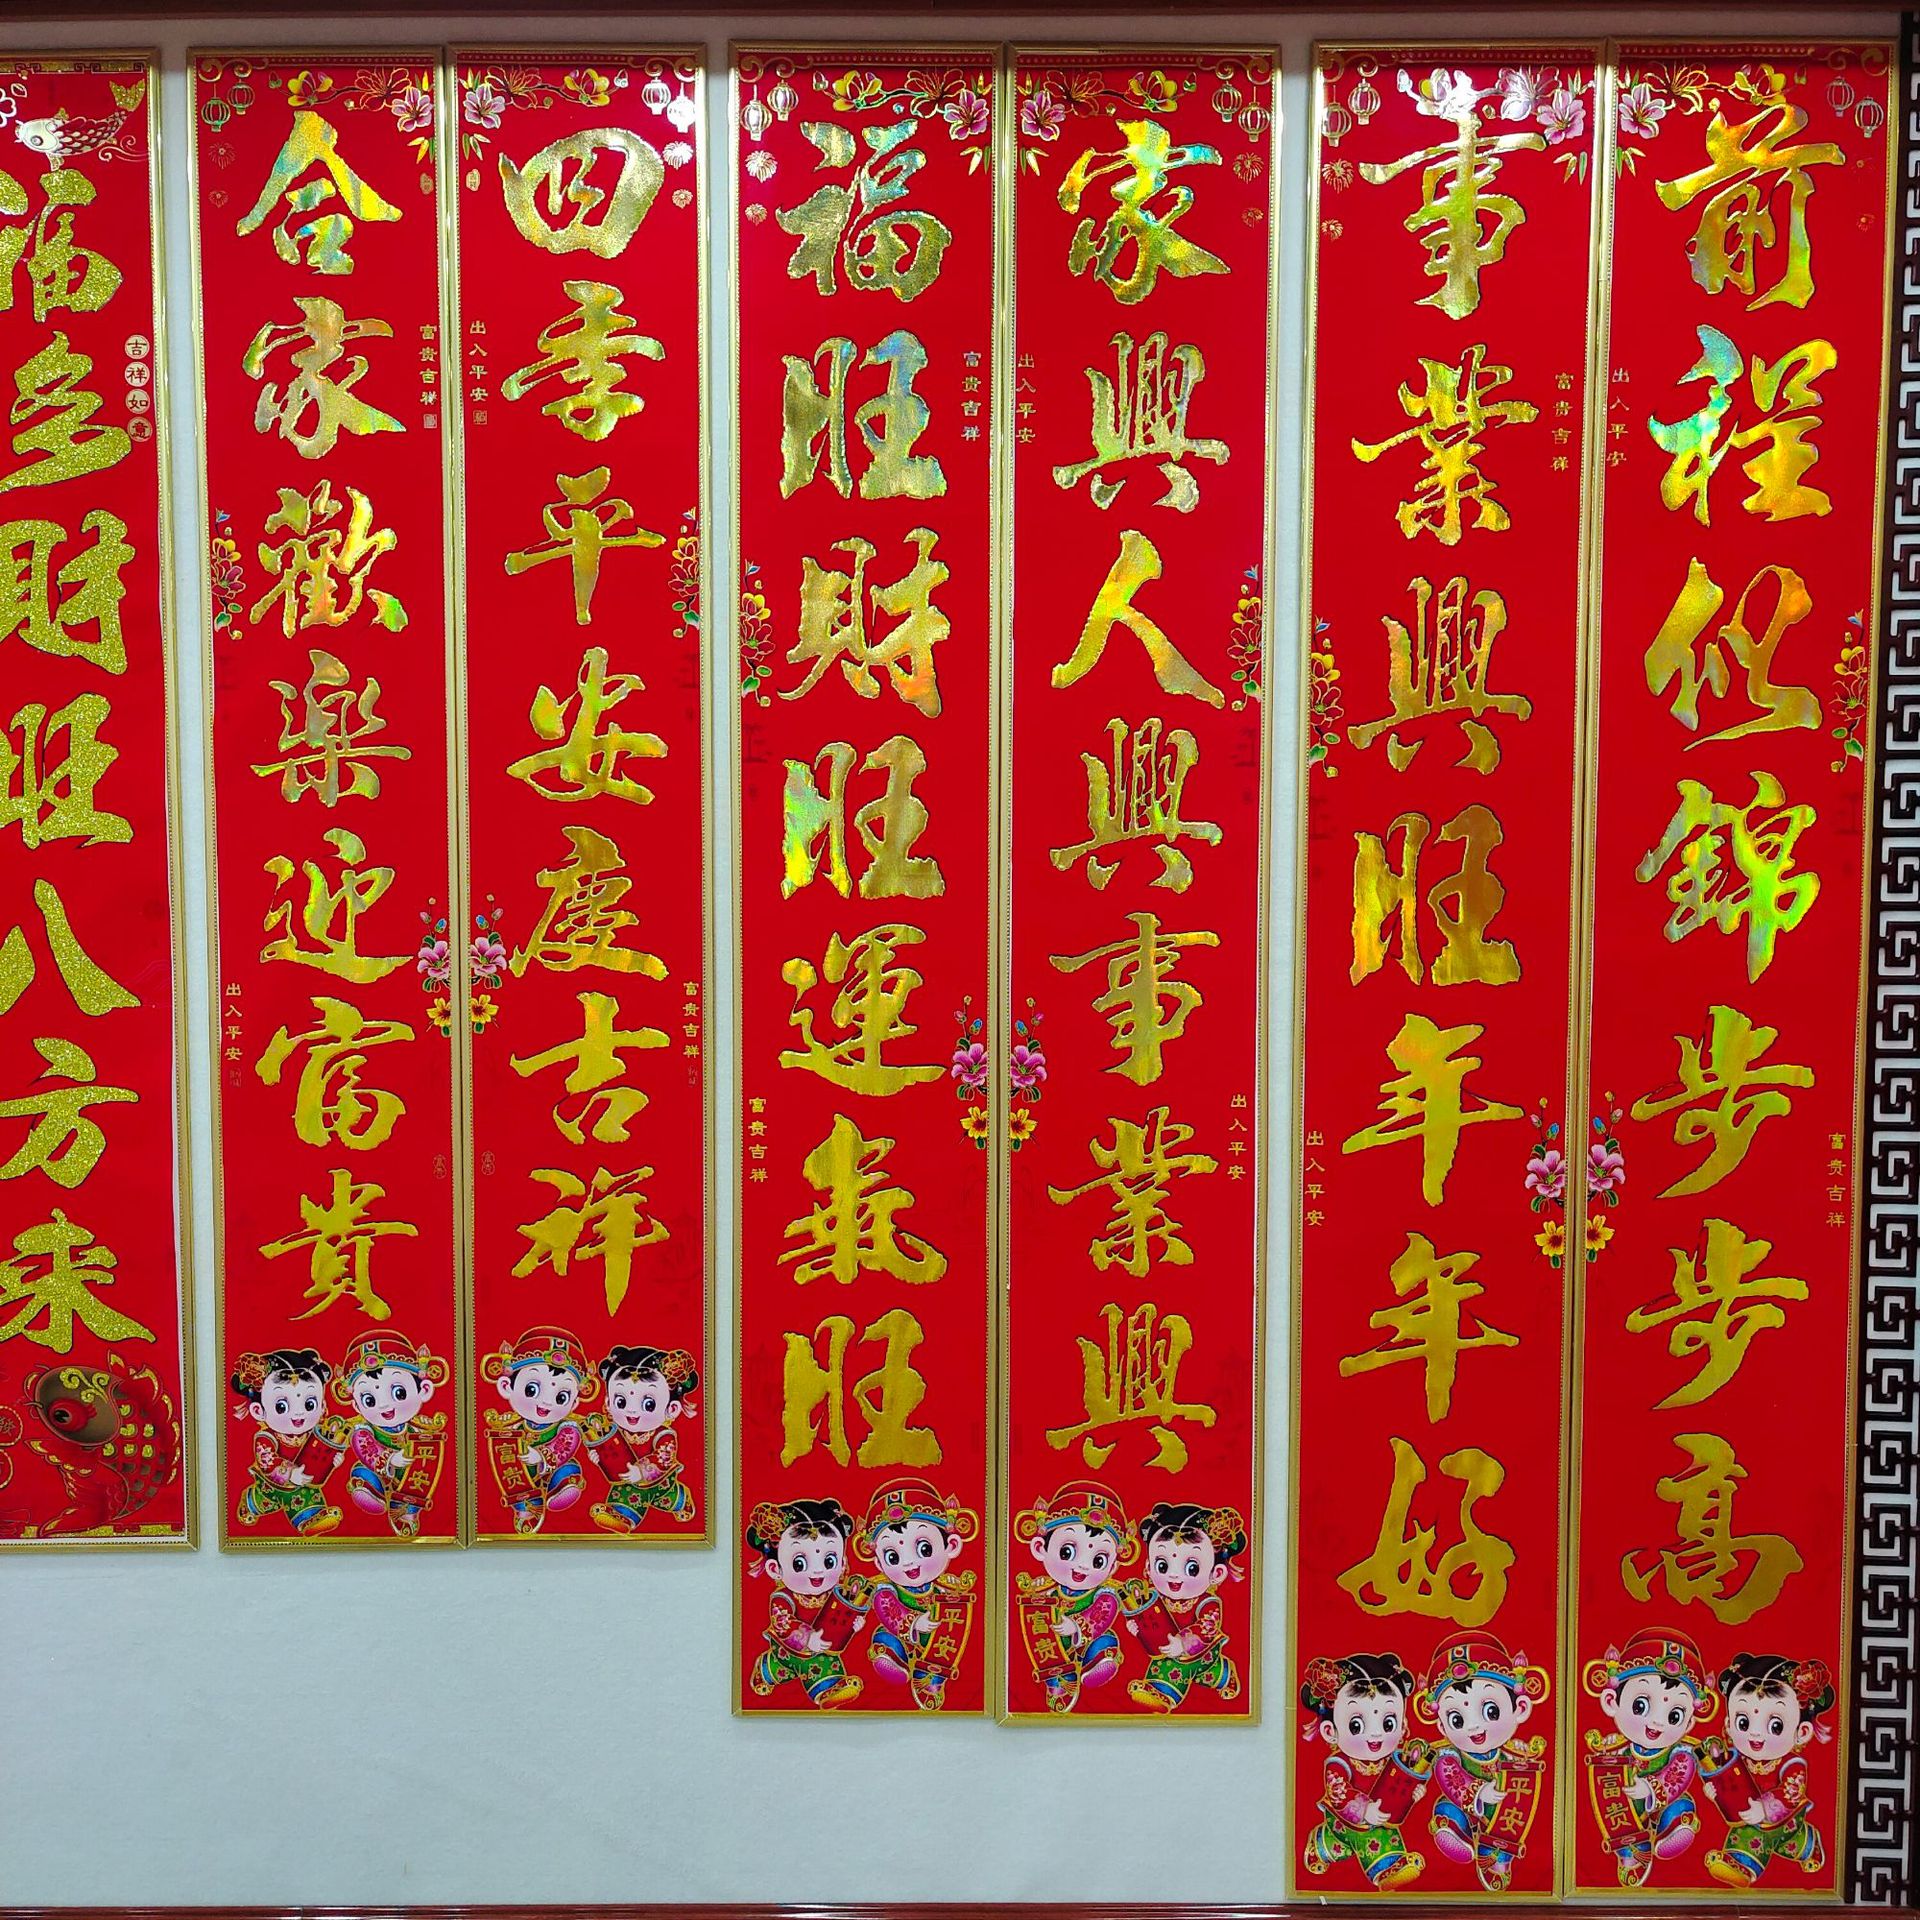 前程似錦步步高
出入平安
富贵吉祥
富贵
事業興旺年年好
富贵吉祥
出入平安
平安
家興人興事業興
出入平安
出入平安
富贵
福旺財旺運氣旺
富贵吉祥
富贵吉祥
平安
四季平安慶吉祥
出入平安
富贵吉祥
富贵
合家歡樂迎富貴
富贵吉祥
出入平安
平安
福多財旺八方来
吉祥如意